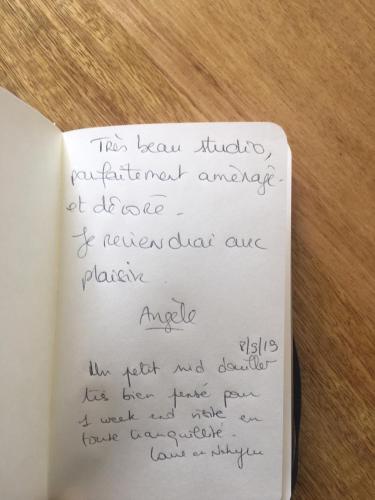 Très beau studio,
parfaitement aménagé
et décoré.
Je reviendrai avec
plaisir.
Angèle
8/3/19
Un petit nid douillet
très bien pensé pour
1 week end visite en
toute tranquillité.